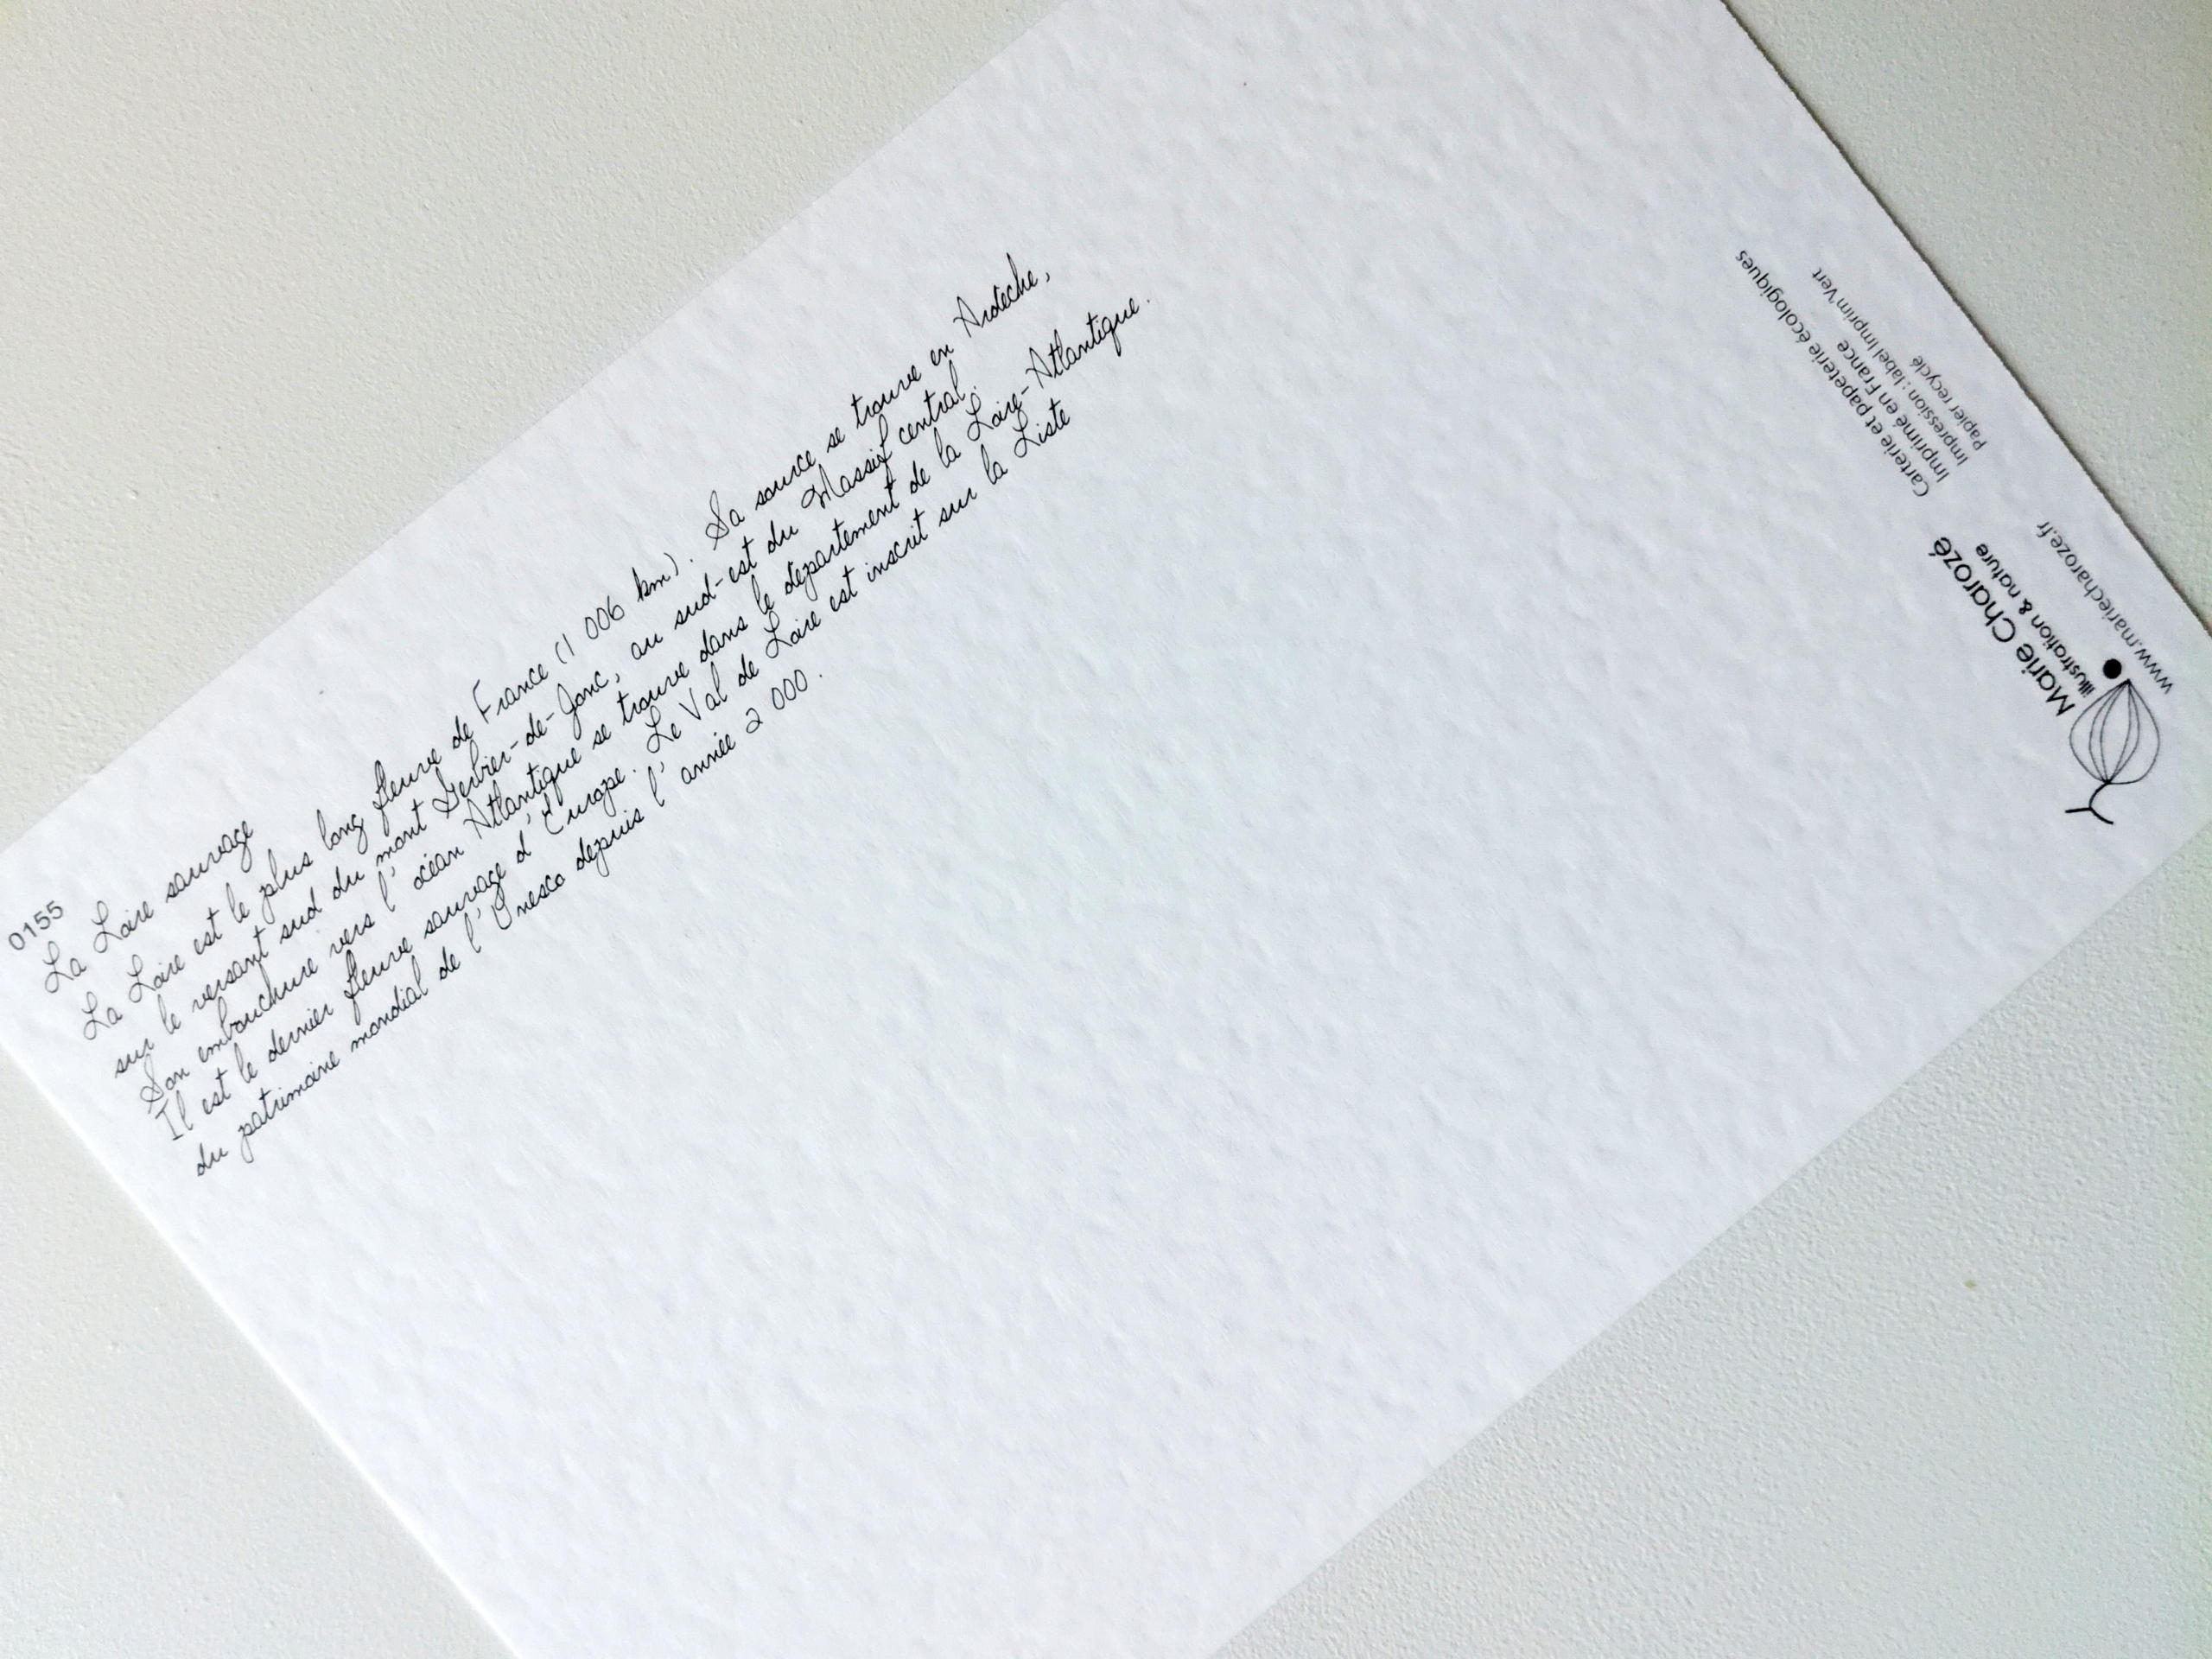 0155
La Loire sauvage
La Loire est le plus long fleuve de France (1 006 km). Sa source se trouve en Ardèche,
sur le versant sud du mont Gerbier-de-Jonc, au sud-est du Massif central.
Son embouchure vers l'océan Atlantique se trouve dans le département de la Loire-Atlantique.
Il est le dernier fleuve sauvage d'Europe. Le Val de Loire est inscrit sur la Liste
du patrimoine mondial de l'Unesco depuis l'année 2 000.
Marie Charozé
illustration & nature
www.mariecharoze.fr
Carterie et papeterie écologiques
Imprimé en France
Impression : label Imprim'Vert
Papier recyclé